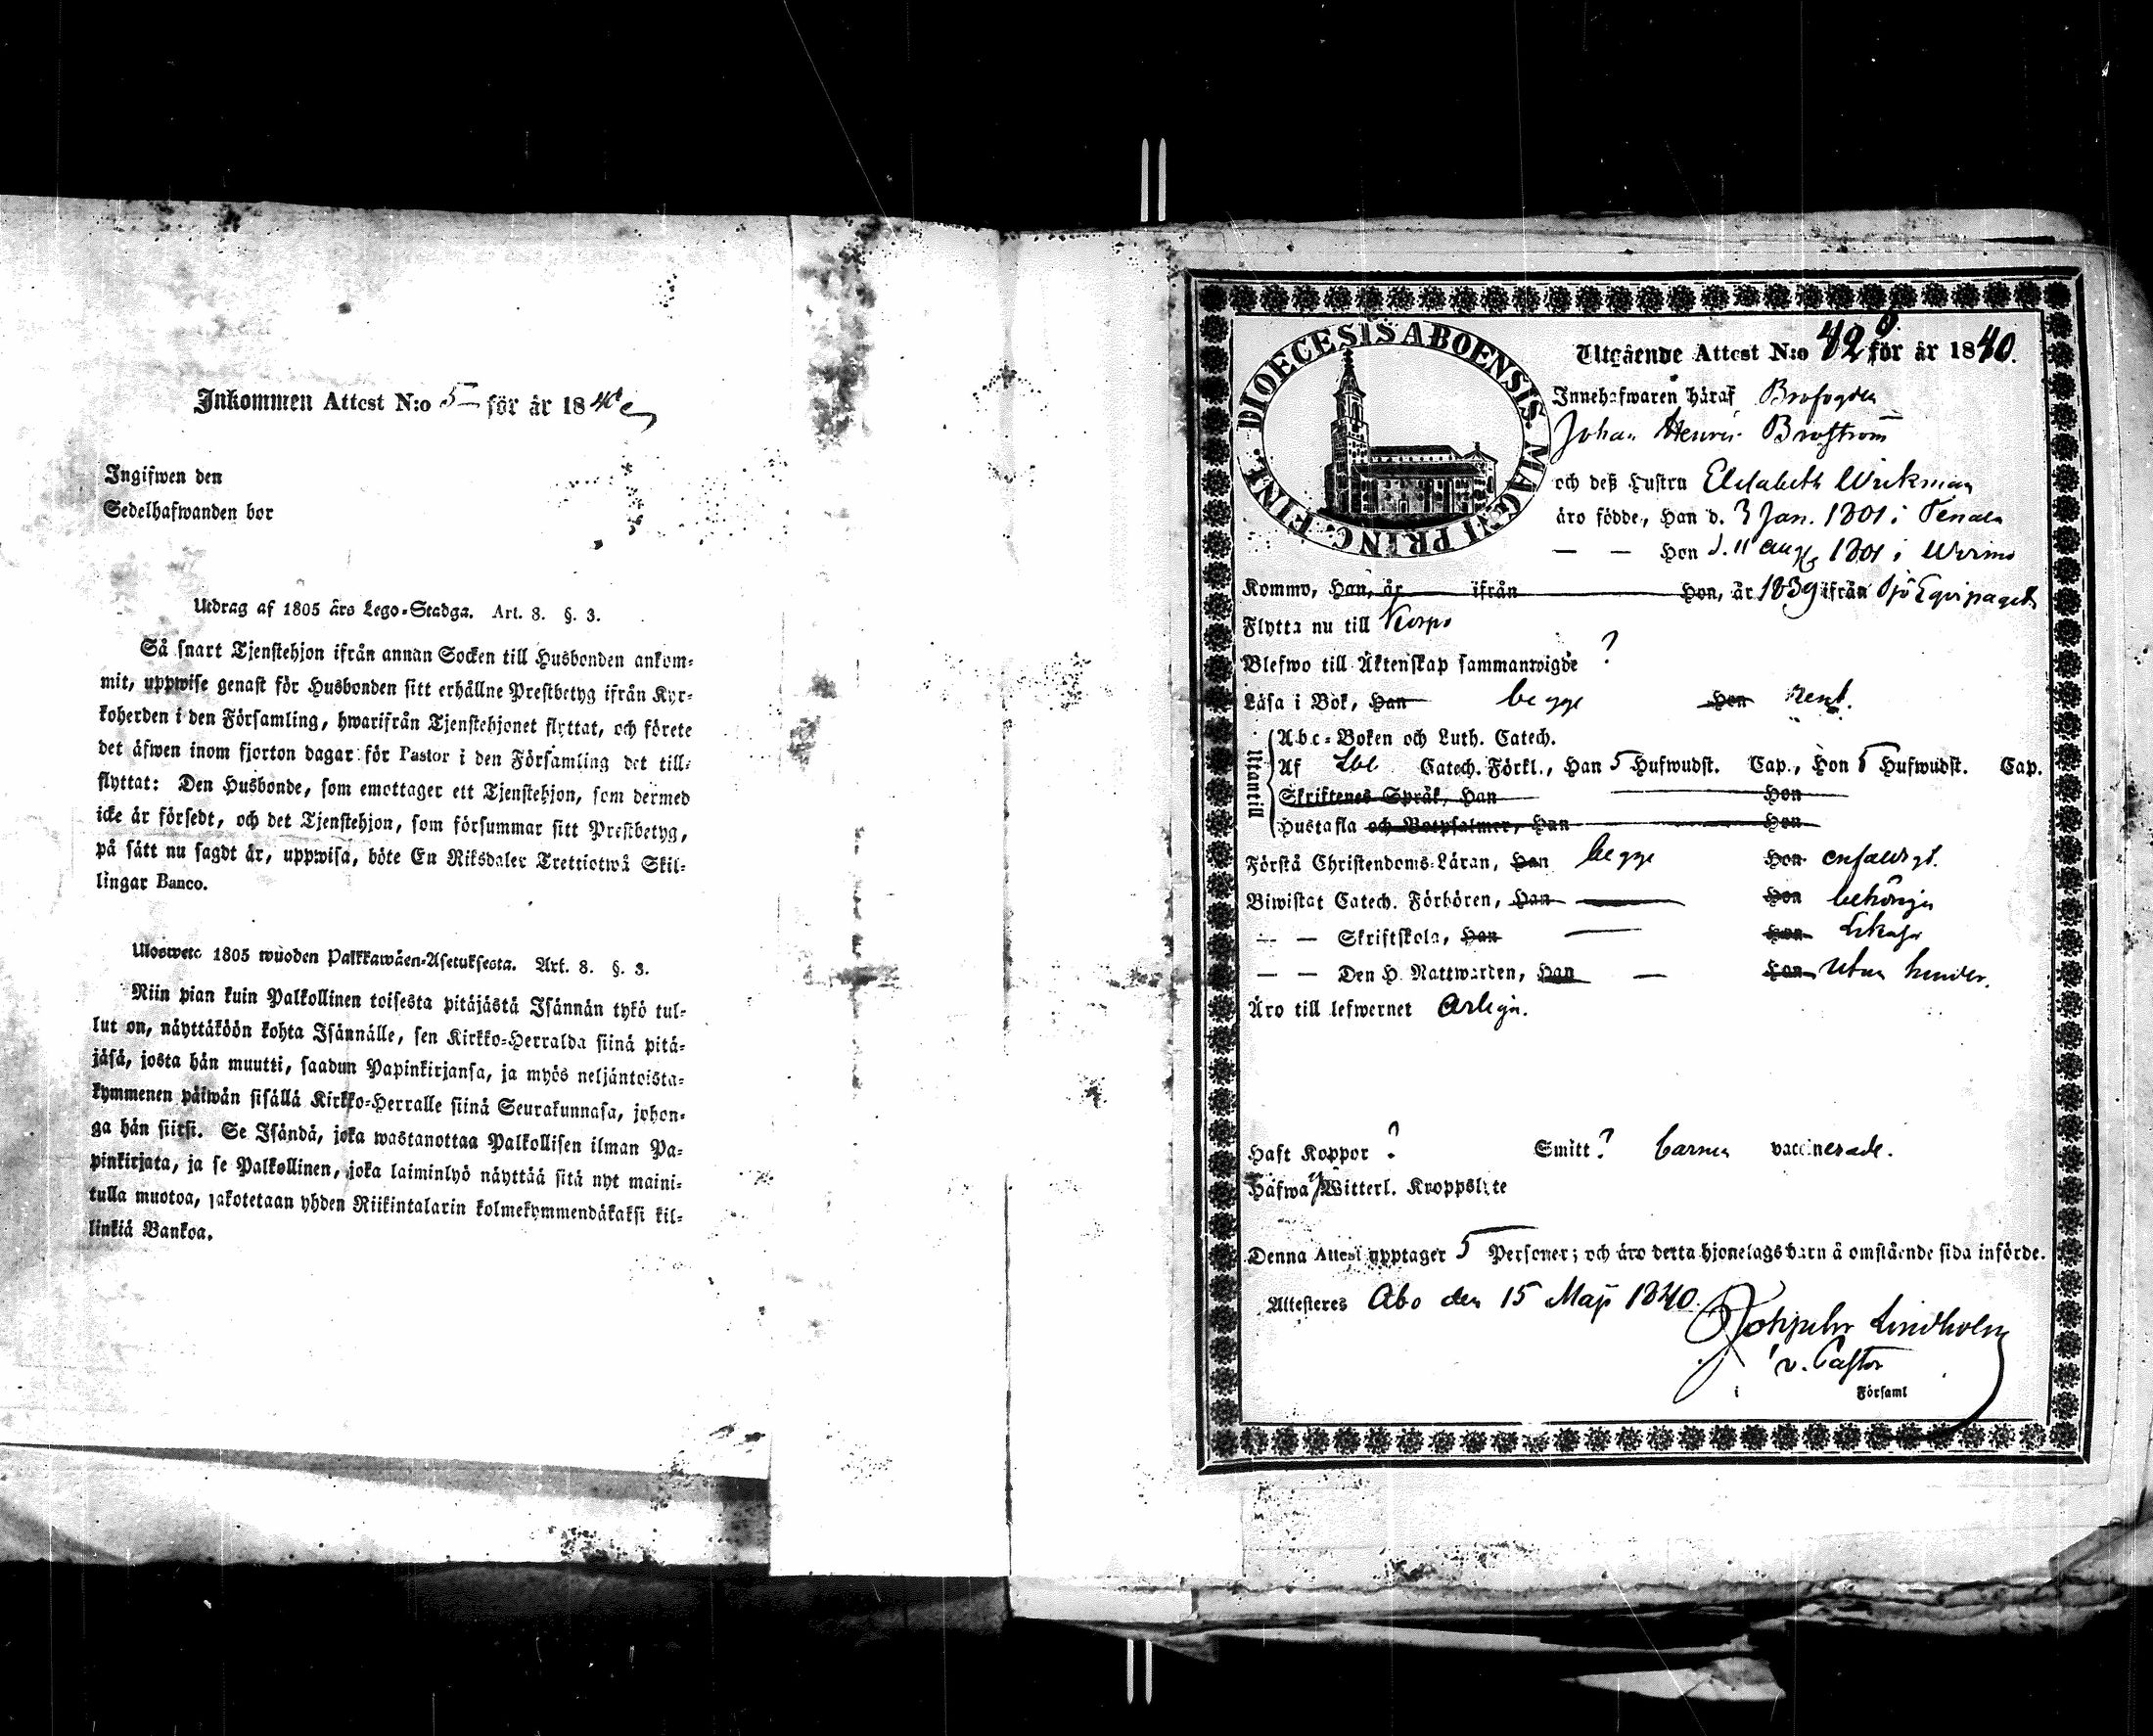 Inkommen Attest N:o 5 för år 1840
Ingifwen den
Sedelhafwanden bor
Utdrag af 1805 års Lego-Stadga. Art. 8. §. 3.
Så snart Tjenstehjon ifrån annan Socken till Husbonden ankom-
mit, uppwise genast för Husbonden sitt erhållne Prestbetyg ifrån Kyr-
koherden i den Församling, hwarifrån Tjenstehjonet flyttat, och förete
det äfwen inom fjorton dagar för Pastor i den Församling det till-
flyttat: Den Husbonde, som emottager ett Tjenstehjon, som dermed
icke är försedt, och det Tjenstehjon, som försummar sitt Prestbetyg,
på sätt nu sagdt är, uppwisa, böte En Riksdaler Trettiotwå Skil-
lingar Banco.
Ulosweto 1805 wuoden Palkkawäen-Asetuksesta. Art. 8. §. 3.
Niin pian kuin Palkollinen toisesta pitäjästä Isännän tykö tul-
lut on, näyttäköön kohta Isännälle, sen Kirkko-Herralda siinä pitä-
jäsä, josta hän muutti, saadun Papinkirjansa, ja myös neljäntoista-
kymmenen päiwän sisällä Kirkko-Herralle siinä Seurakunnasa, johon-
ga hän siitsi. Se Isändä, joka wastanottaa Palkollisen ilman Pa-
pinkirjata, ja se Palkollinen, joka laiminlyö näyttää sitä nyt maini-
tulla muotoa, sakotetaan yhden Riikintalarin kolmekymmendäkaksi kil-
linkiä Bankoa.
DIOECESIS ABOENSIS MAGNI PRINC. FINL.
Utgående Attest N:o 42 för år 1840.
Innehafwaren häraf Brofogden
Johan Henric Broström
och deß Hustru Elisabeth Wirkman
äro födde, Han d. 3 Jan. 1801 i Tenala
— — Hon d. 11 aug 1801 i Wirmo
Kommo, Han, år ifrån Hon, år 1839 ifrån Sjö Equipaget
Flytta nu till Korpo
Blefwo till Äktenskap sammanwigde ?
Läsa i Bok, Han begge Hon rent.
Utantill
Abc-Boken och Luth. Catech.
Af Catech. Förkl., Han 5 Hufwudst. Cap., Hon 5 Hufwudst. Cap.
Skriftenes Språk, Han Hon
Hustafla och Botpsalmer, Han Hon
Förstå Christendoms-Läran, Han begge Hon enfaldigt.
Biwistat Catech. Förhören, Han — Hon behörigen
— — Skriftskola, Han — Hon
— — Den H. Nattwarden, Han — Hon utan hinder.
Äro till lefwernet ärliga.
Haft Koppor ? Smitt ? barnen vaccinerade.
Häfwa ej Witterl. Kroppslyte
Denna Attest upptager 5 Personer; och äro detta hjonelags barn å omstående sida införde.
Attesteres Åbo den 15 Maji 1840.
Lindholm
v. Pastor
i Församl